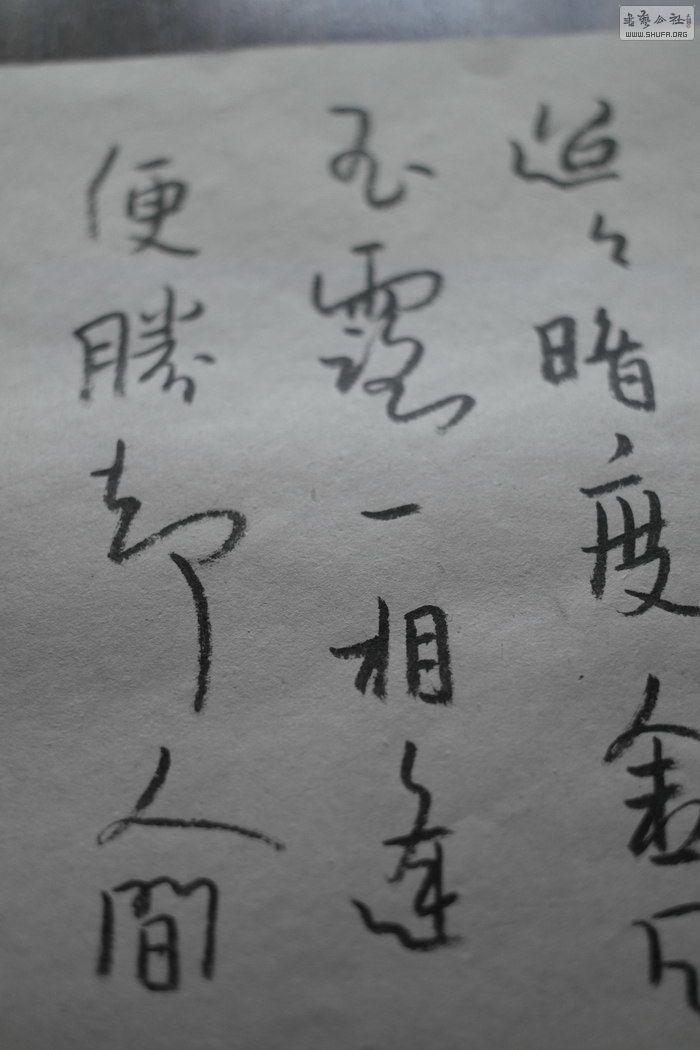 書藝公社
WWW.SHUFA.ORG
迢々暗度金
玉露一相逢
便勝却人間